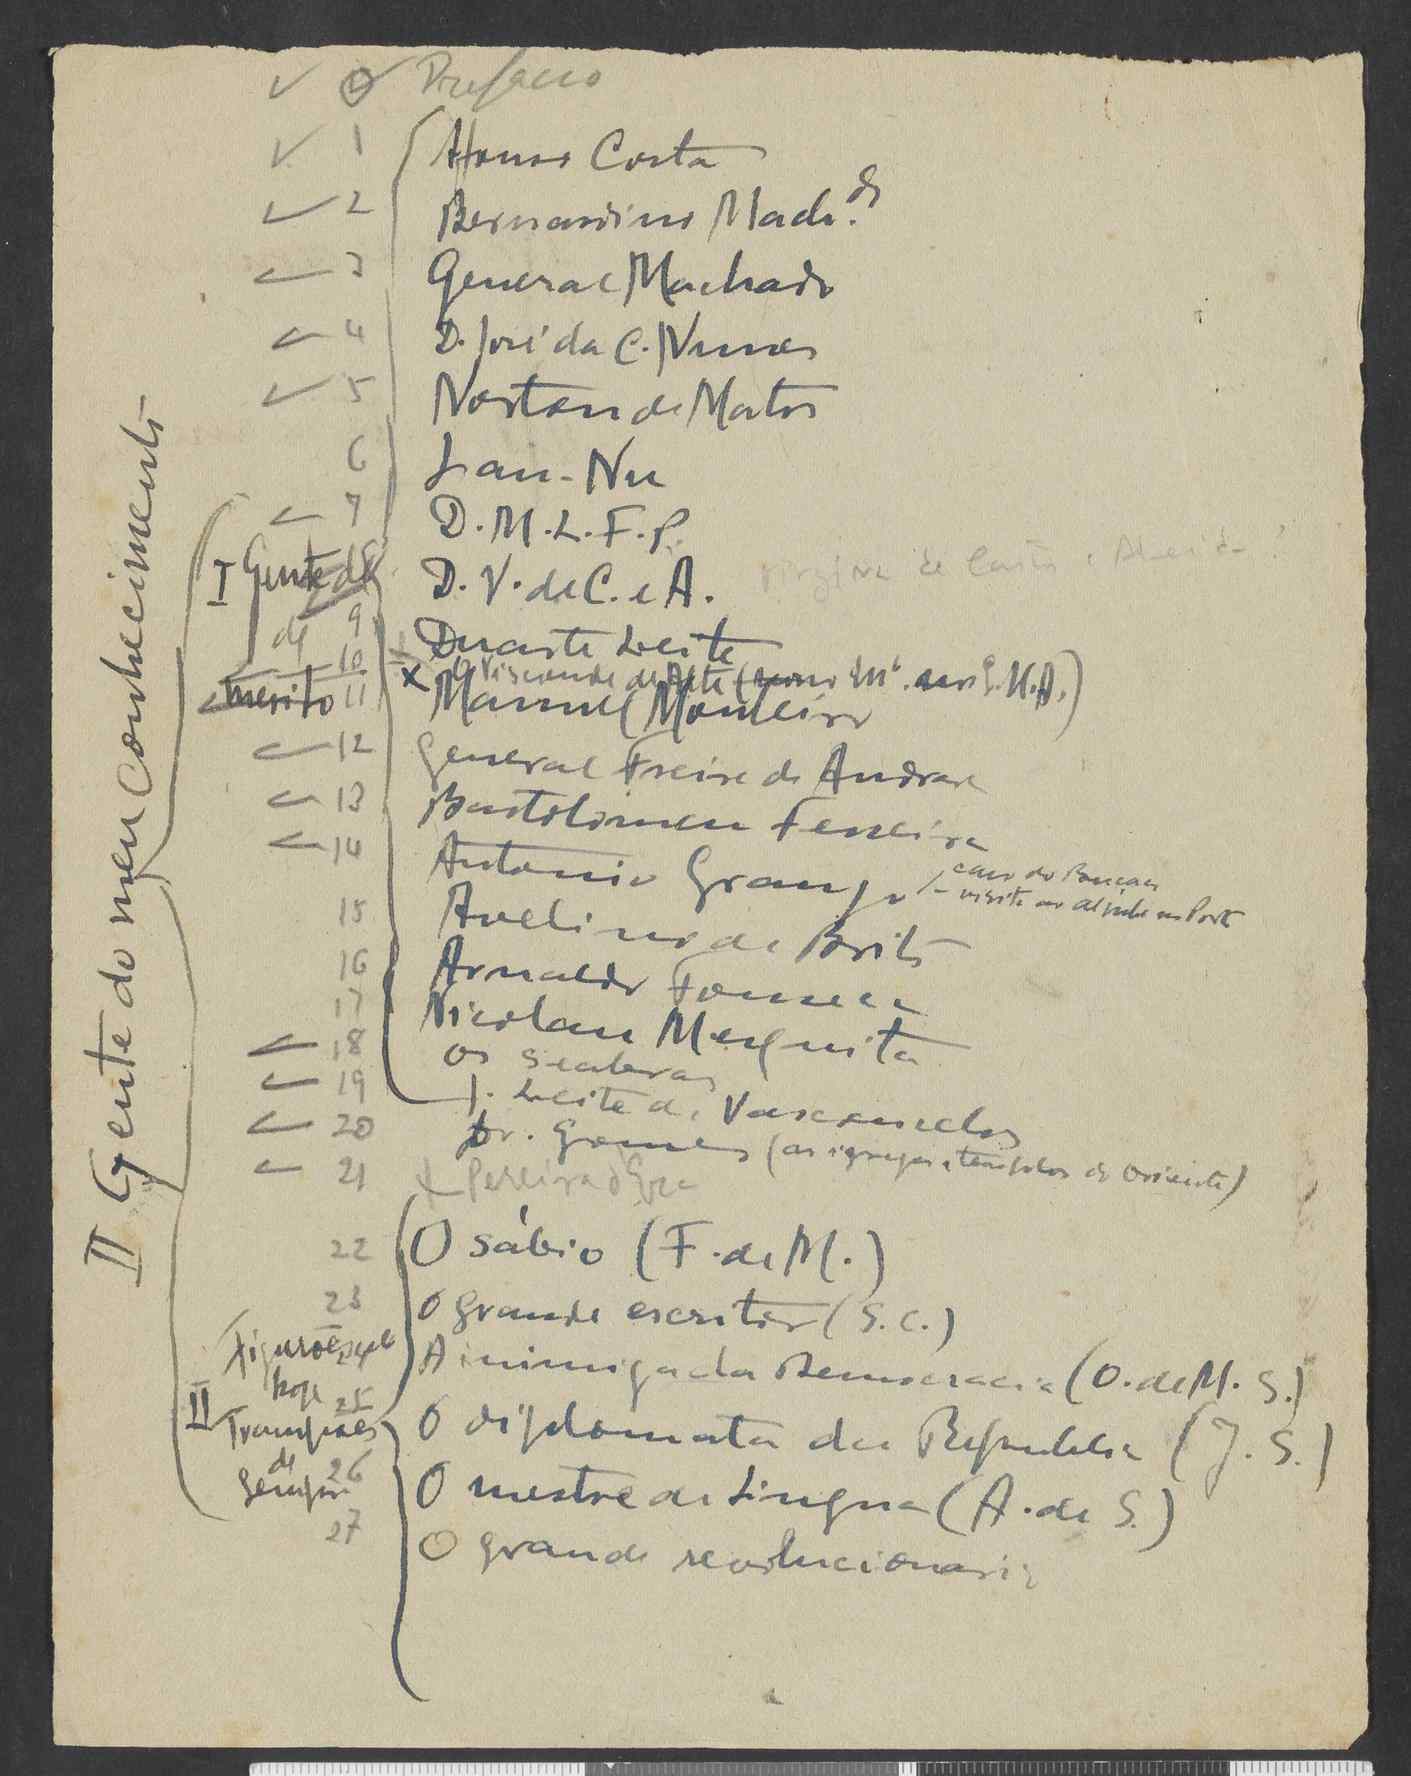 0 Prefacio
1 Afonso Costa
2 Bernardino Machdo.
3 General Machado
4 D. José da C. Nunes
5 Norton de Matos
6 Lau-Nu
7 D. M. L. F. P.
8 D. V. de C. e A. de Castro e Almeida?
9 Duarte Leite
10 x O Visconde de Alte
11 Manuel Monteiro
12 General Freire de Andrade
13 Bartolomeu Ferreira
14 Antonio Granjo
caso do
visita ao no Porto
15 Avelino de Brito
16 Arnaldo Fonseca
17 Nicolau Mesquita
18 os seabras
19 J. Leite de Vasconcelos
20 Dr. Gomes (as igrejas e templos do Oriente)
21 Pereira d'Eça
22 O sábio (F. de M.)
23 O grande escritor (S. C.)
24 A inimiga da Democracia (O. de M. S.)
25 O diplomata da Republica (J. S.)
26 O mestre de Lingua (A. de S.)
27 O grande revolucionario
II Gente do meu conhecimento
I Gente de
de
merito
II
Figurões de
hoje
Trampões
de
Sempre